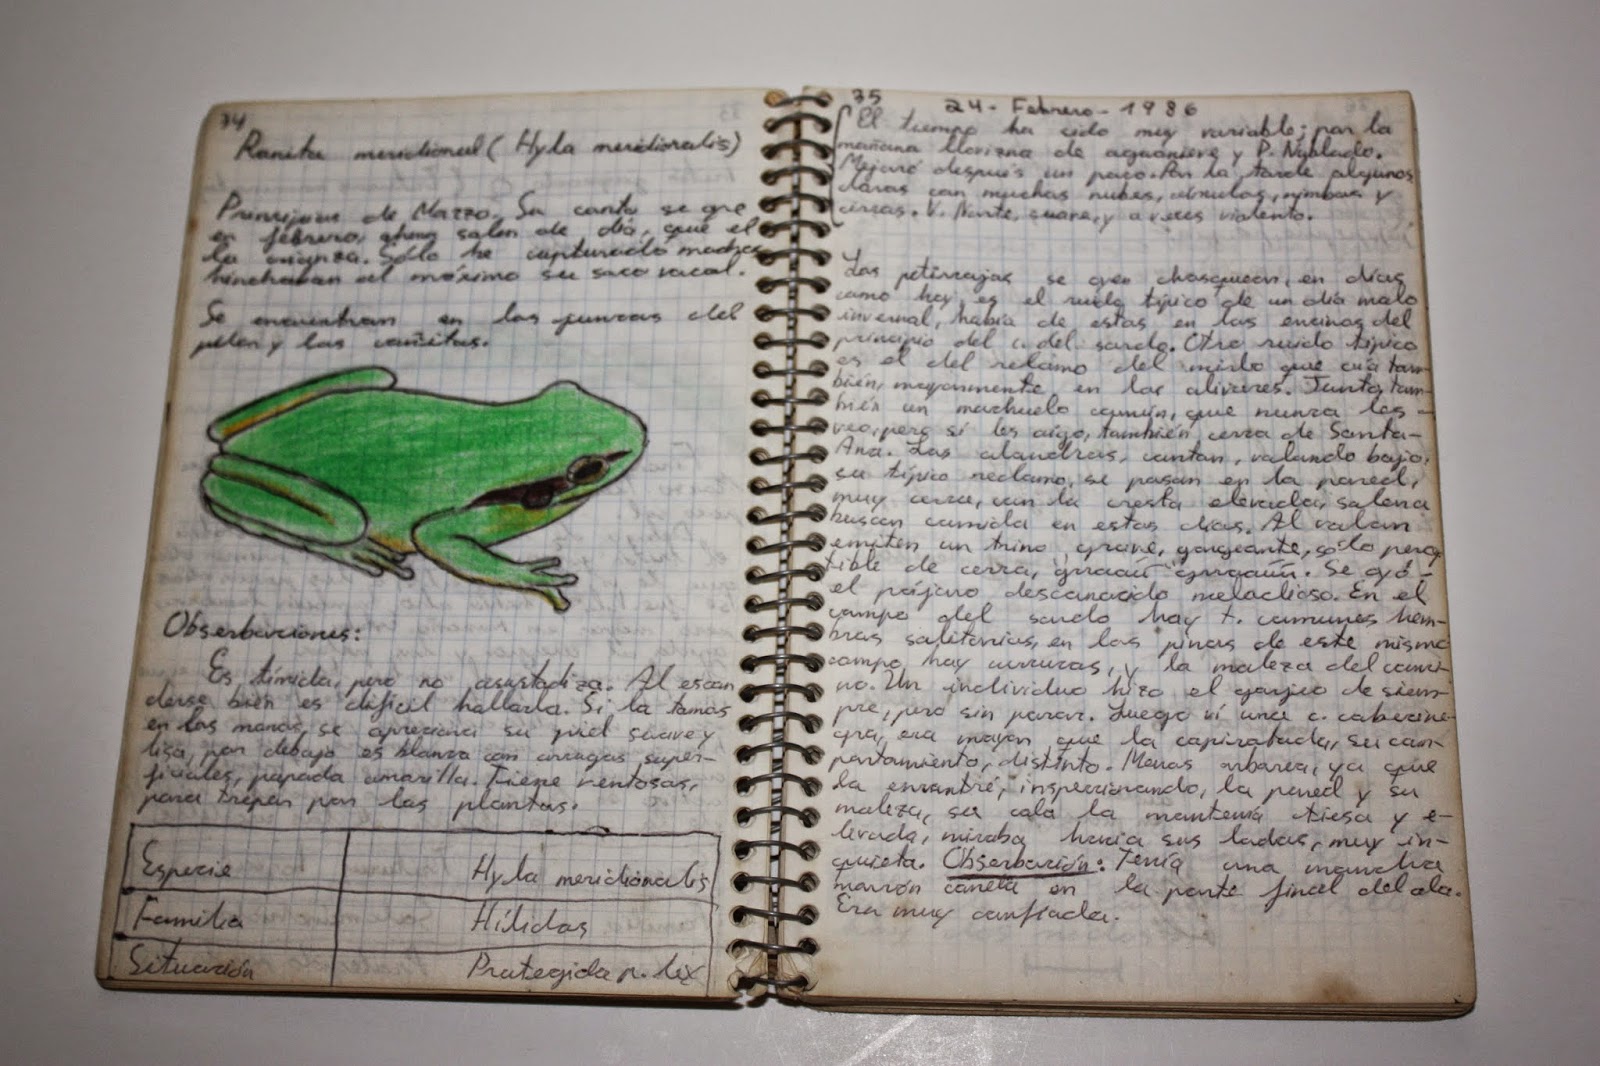 34
Ranita meridional (Hyla meridionalis)
Principios de Marzo. Su canto se oye
en febrero, ahora salen de día, que el
la Sólo he capturado machos
hinchaban al máximo su saco vocal.
Se encuentran en los juncos del
pilon y las cañitas.
Obserbaciones:
Es tímida, pero no asustadiza. Al escon
derse bien es dificil hallarla. Si la tomas
en las manos, se apreciará su piel suave y
lisa, por debajo es blanca con arrugas super-
ficiales, papada amarilla. Tiene ventosas,
para trepar por las plantas.
Especie Hyla meridionalis
Familia Hílidos
Situación Protegida p. ley
35 24 - Febrero - 1986
El tiempo ha sido muy variable; por la
mañana llovizna de aguanieve y P. Nublado.
Mejoró después un poco. Por la tarde algunos
claros con muchas nubes, cúmulos, nimbos y
cirros. V. Norte, suave, y a veces violento.
Los petirrojos se oyen chasquear, en días
como hoy, es el ruido típico de un día malo
invernal, había de estos en las encinas del
principio del c. del sordo. Otro ruido típico
es el del reclamo del mirlo que cría tam-
bién, mayormente en los olivares. Junto, tam-
bién un mochuelo común, que nunca los
veo, pero sí los oigo, también, cerca de Santa-
Ana. Las alondras, cantan, volando bajo,
su típico reclamo, se posan en la pared,
muy cerca, con la cresta elevada,
buscan comida en estos días. Al volar
emiten un trino grave, gorgeante, sólo percep
tible de cerca, Se oyó
el pájaro desconocido melodioso. En el
campo del sordo hay t. comunes hem-
bras solitarias, en los pinos de este mismo
campo hay currucas, y la maleza del cami-
no. Un individuo hizo el gorjeo de siem-
pre, pero sin parar. Luego ví una c. cabecine-
gra, era mayor que la capirotada, su com-
portamiento, distinto. Menos arborea, ya que
la encontré, inspeccionando, la pared y su
maleza, su cola la mantenía tiesa y e-
levada, miraba hacia sus lados, muy in-
quieta. Obserbación: Tenía una mancha
marrón canela en la parte final del ala.
Era muy confiada.